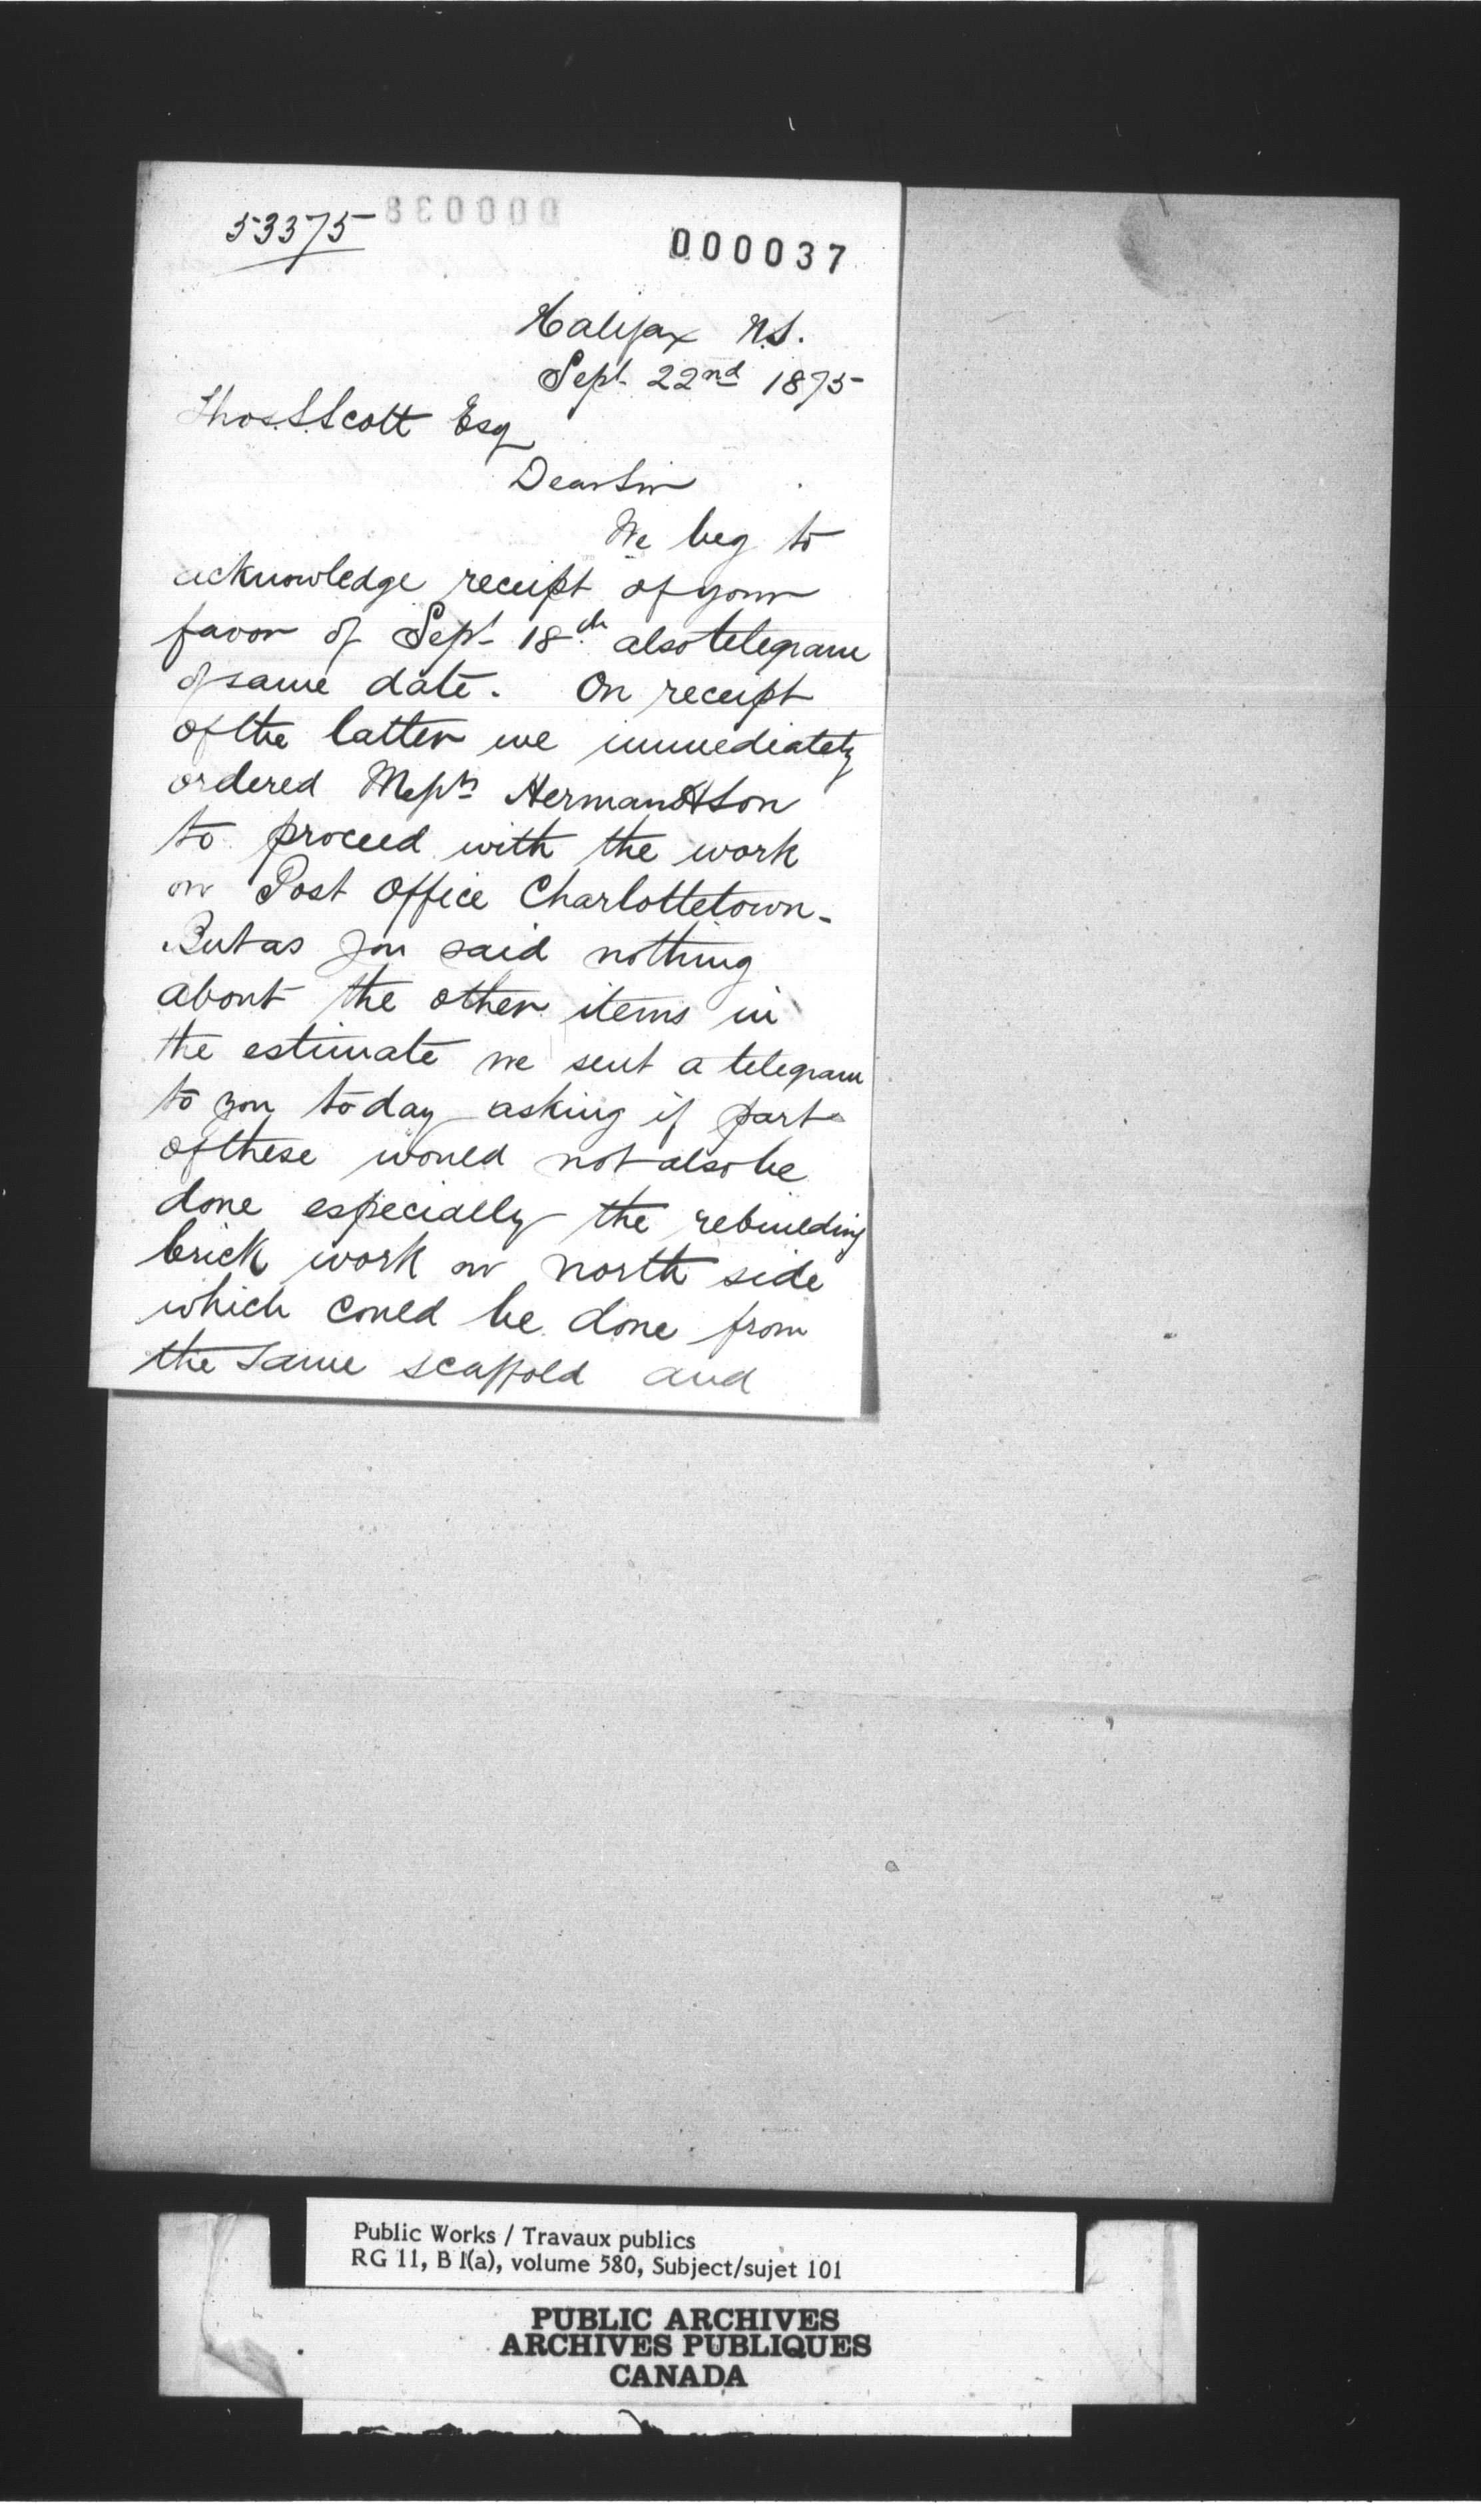 53375
000038
000037
Halifax N.S.
Sept. 22nd 1875
Thos. S. Scott Esq
Dear Sir
We beg to
acknowledge receipt of your
favor of Sept 18th also telegram
of same date. On receipt
of the latter we immediately
ordered Messrs Hermans & Son
to proceed with the work
on Post Office Charlottetown -
But as you said nothing
about the other items in
the estimate we sent a telegram
to you today asking if parts
of these would not also be
done especially the rebuilding
brick work on north side
which could be done from
the same scaffold and
Public Works / Travaux publics
RG 11, B 1(a), volume 580, Subject/sujet 101
PUBLIC ARCHIVES
ARCHIVES PUBLIQUES
CANADA